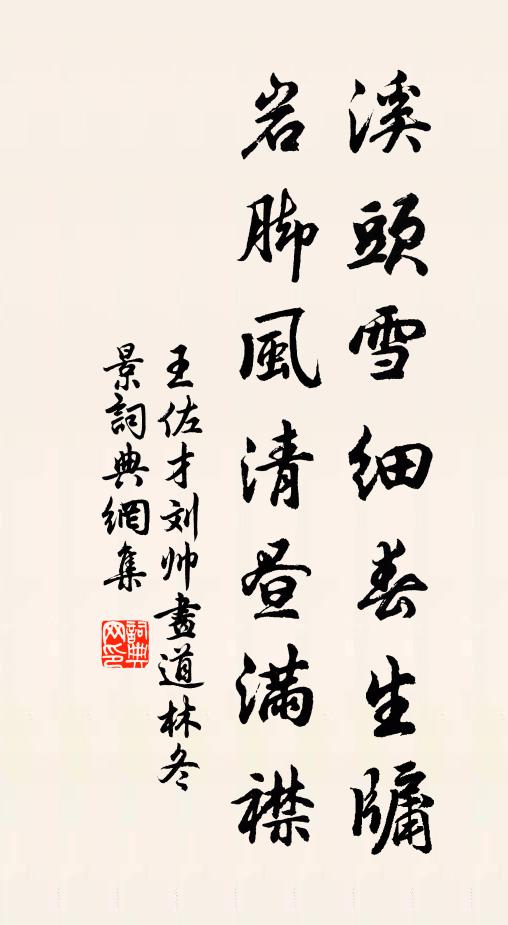 溪頭雪细春生牖
岩脚風清昼满襟
王佐才刘帅畫道林冬
景詞典網集
詞典
网印